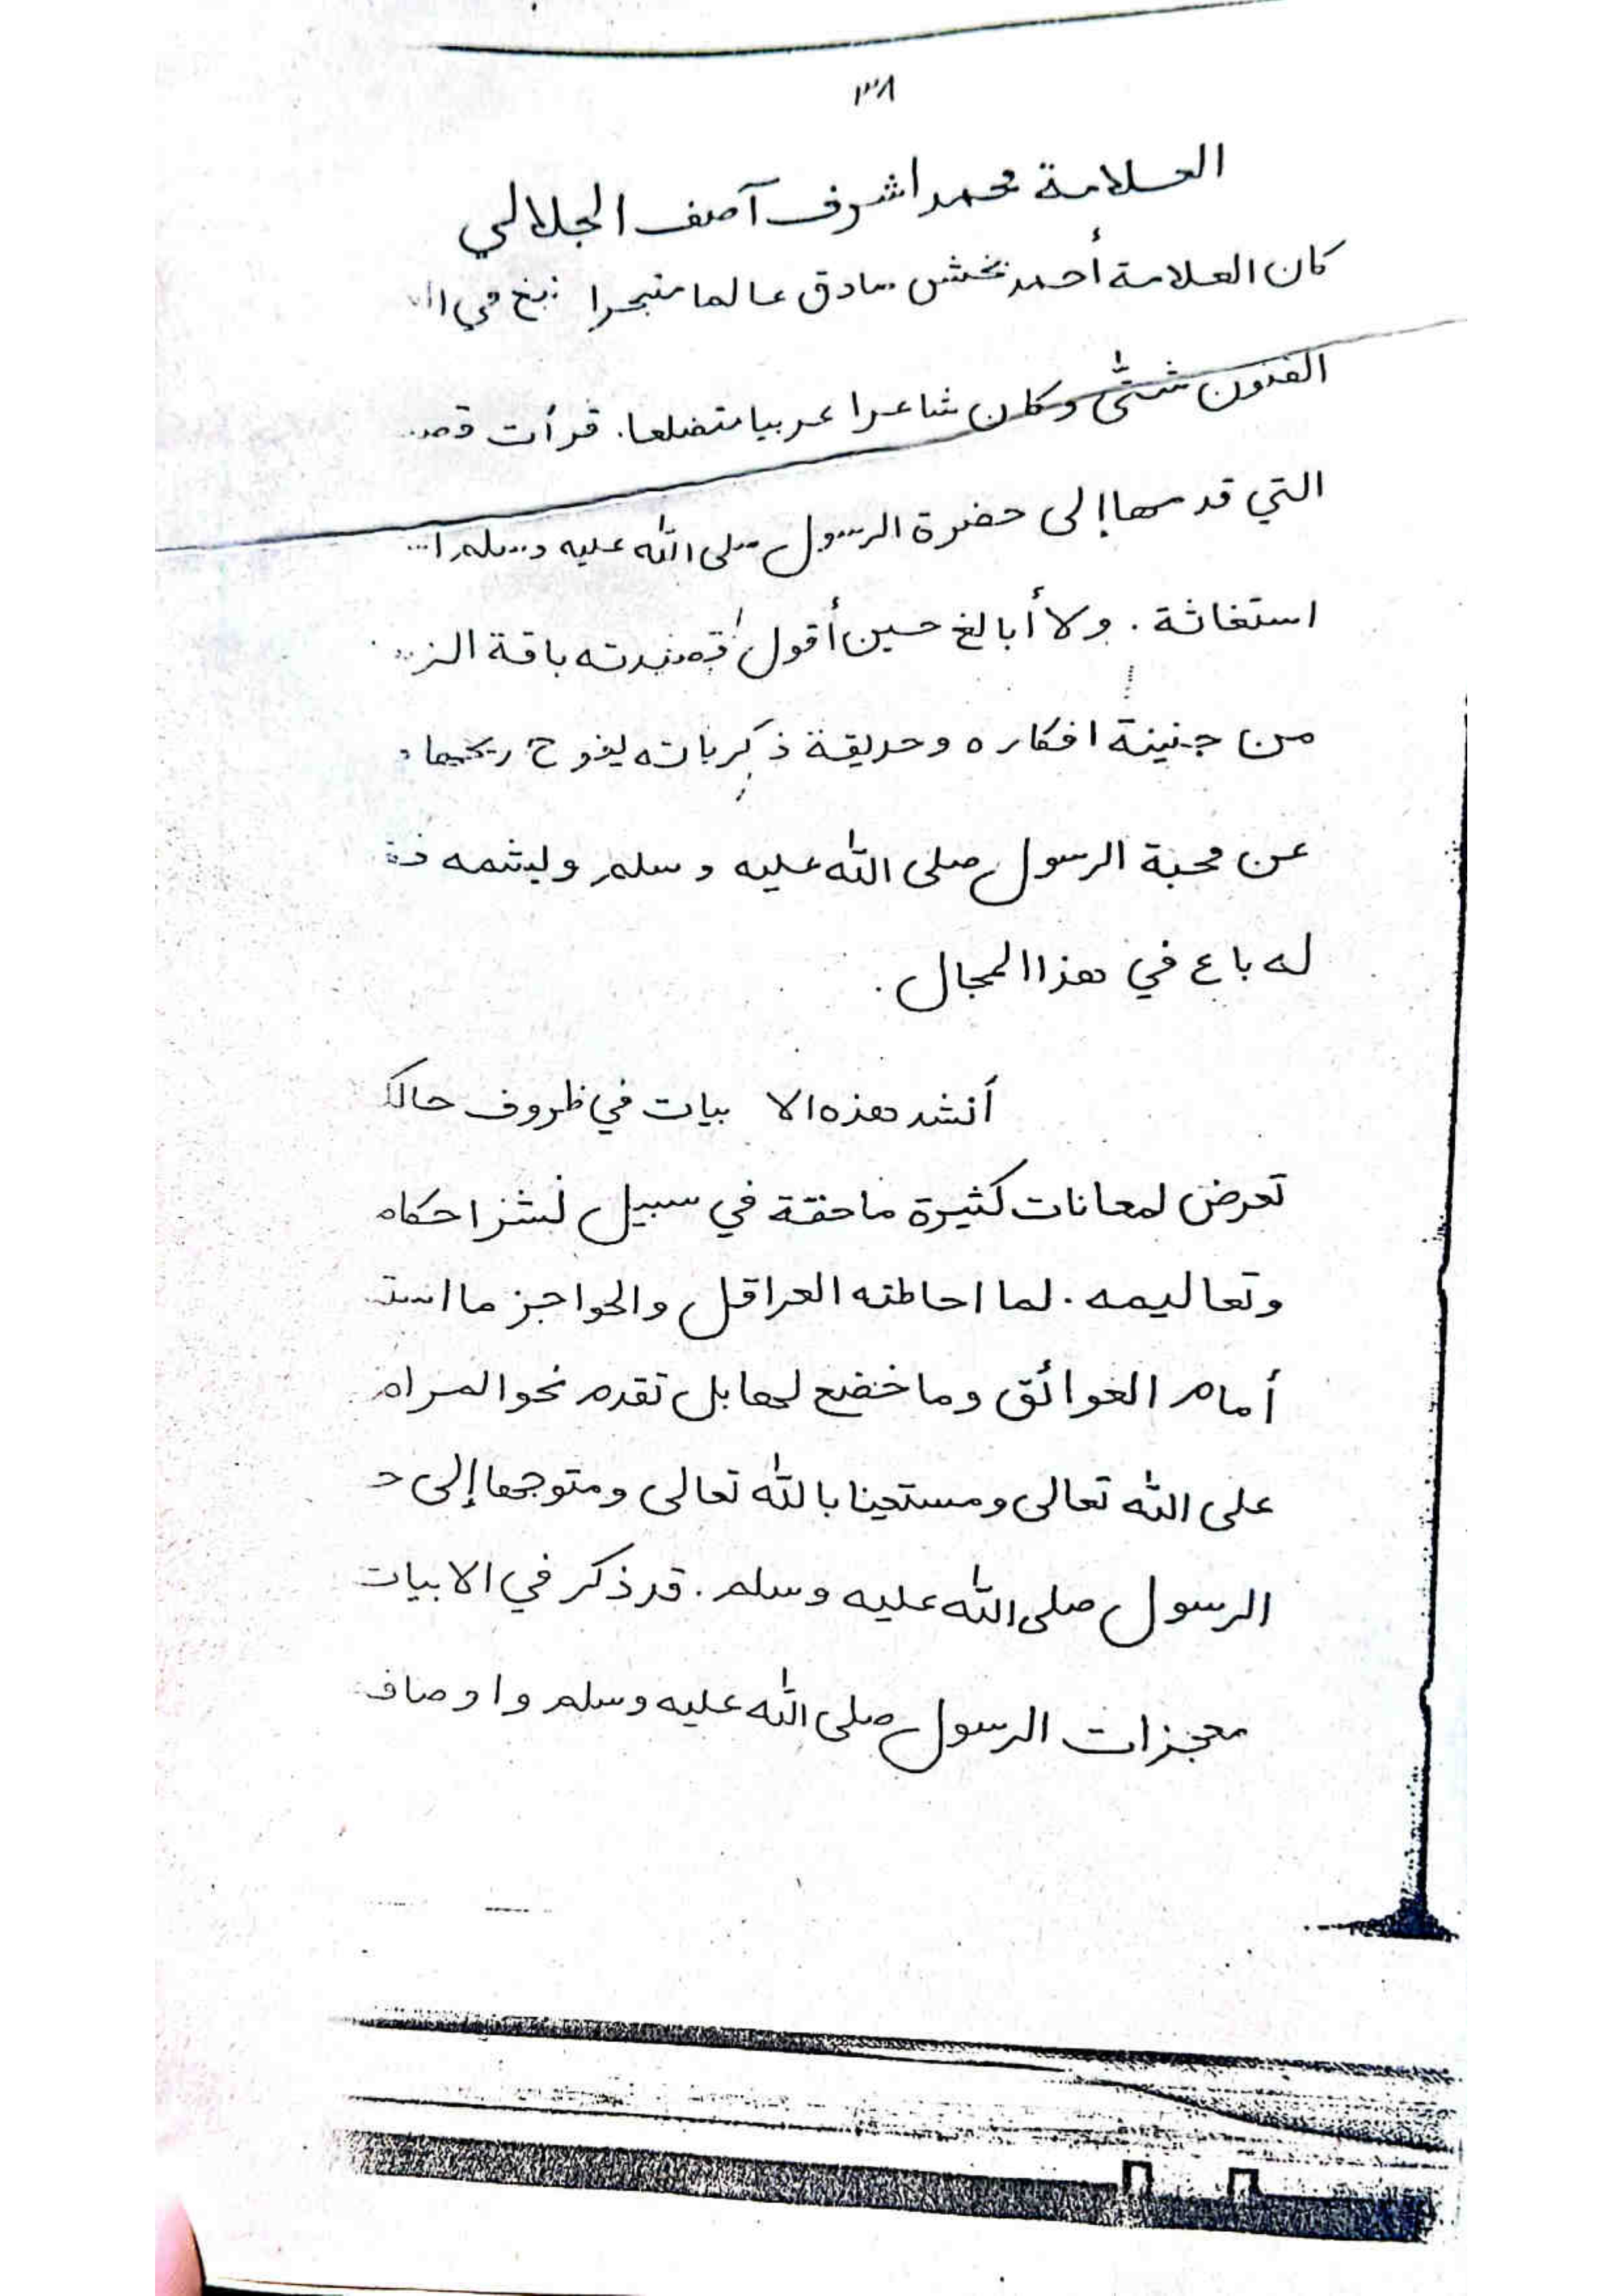 ٣٨
العلامة محمد اشرف آصف الجلالي
كان العلامة أحمد بخش صادق عالما متبحرا نبغ في
الفنون شتىٰ وكان شاعرا عربيا متضلعا. قرأت
التي قدمها إلى حضرة الرسول صلى الله عليه وسلم
استغاثة. ولا أبالغ حين أقول قصيدته باقة
من جنينة افكاره وحديقة ذكرياته يفوح ريحها
عن محبة الرسول صلى الله عليه وسلم ويشمه
له باع في هذا المجال.
أنشد هذه الا بيات في ظروف
تعرض لمعانات كثيرة ماحقة في سبيل نشر احكام
وتعاليمه. لما احاطته العراقل والحواجز ما
أمام العوائق وما خضع لها بل تقدم نحو المرام
على الله تعالى ومستعينا بالله تعالى ومتوجها إلى
الرسول صلى الله عليه وسلم. قد ذكر في الابيات
معجزات الرسول صلى الله عليه وسلم